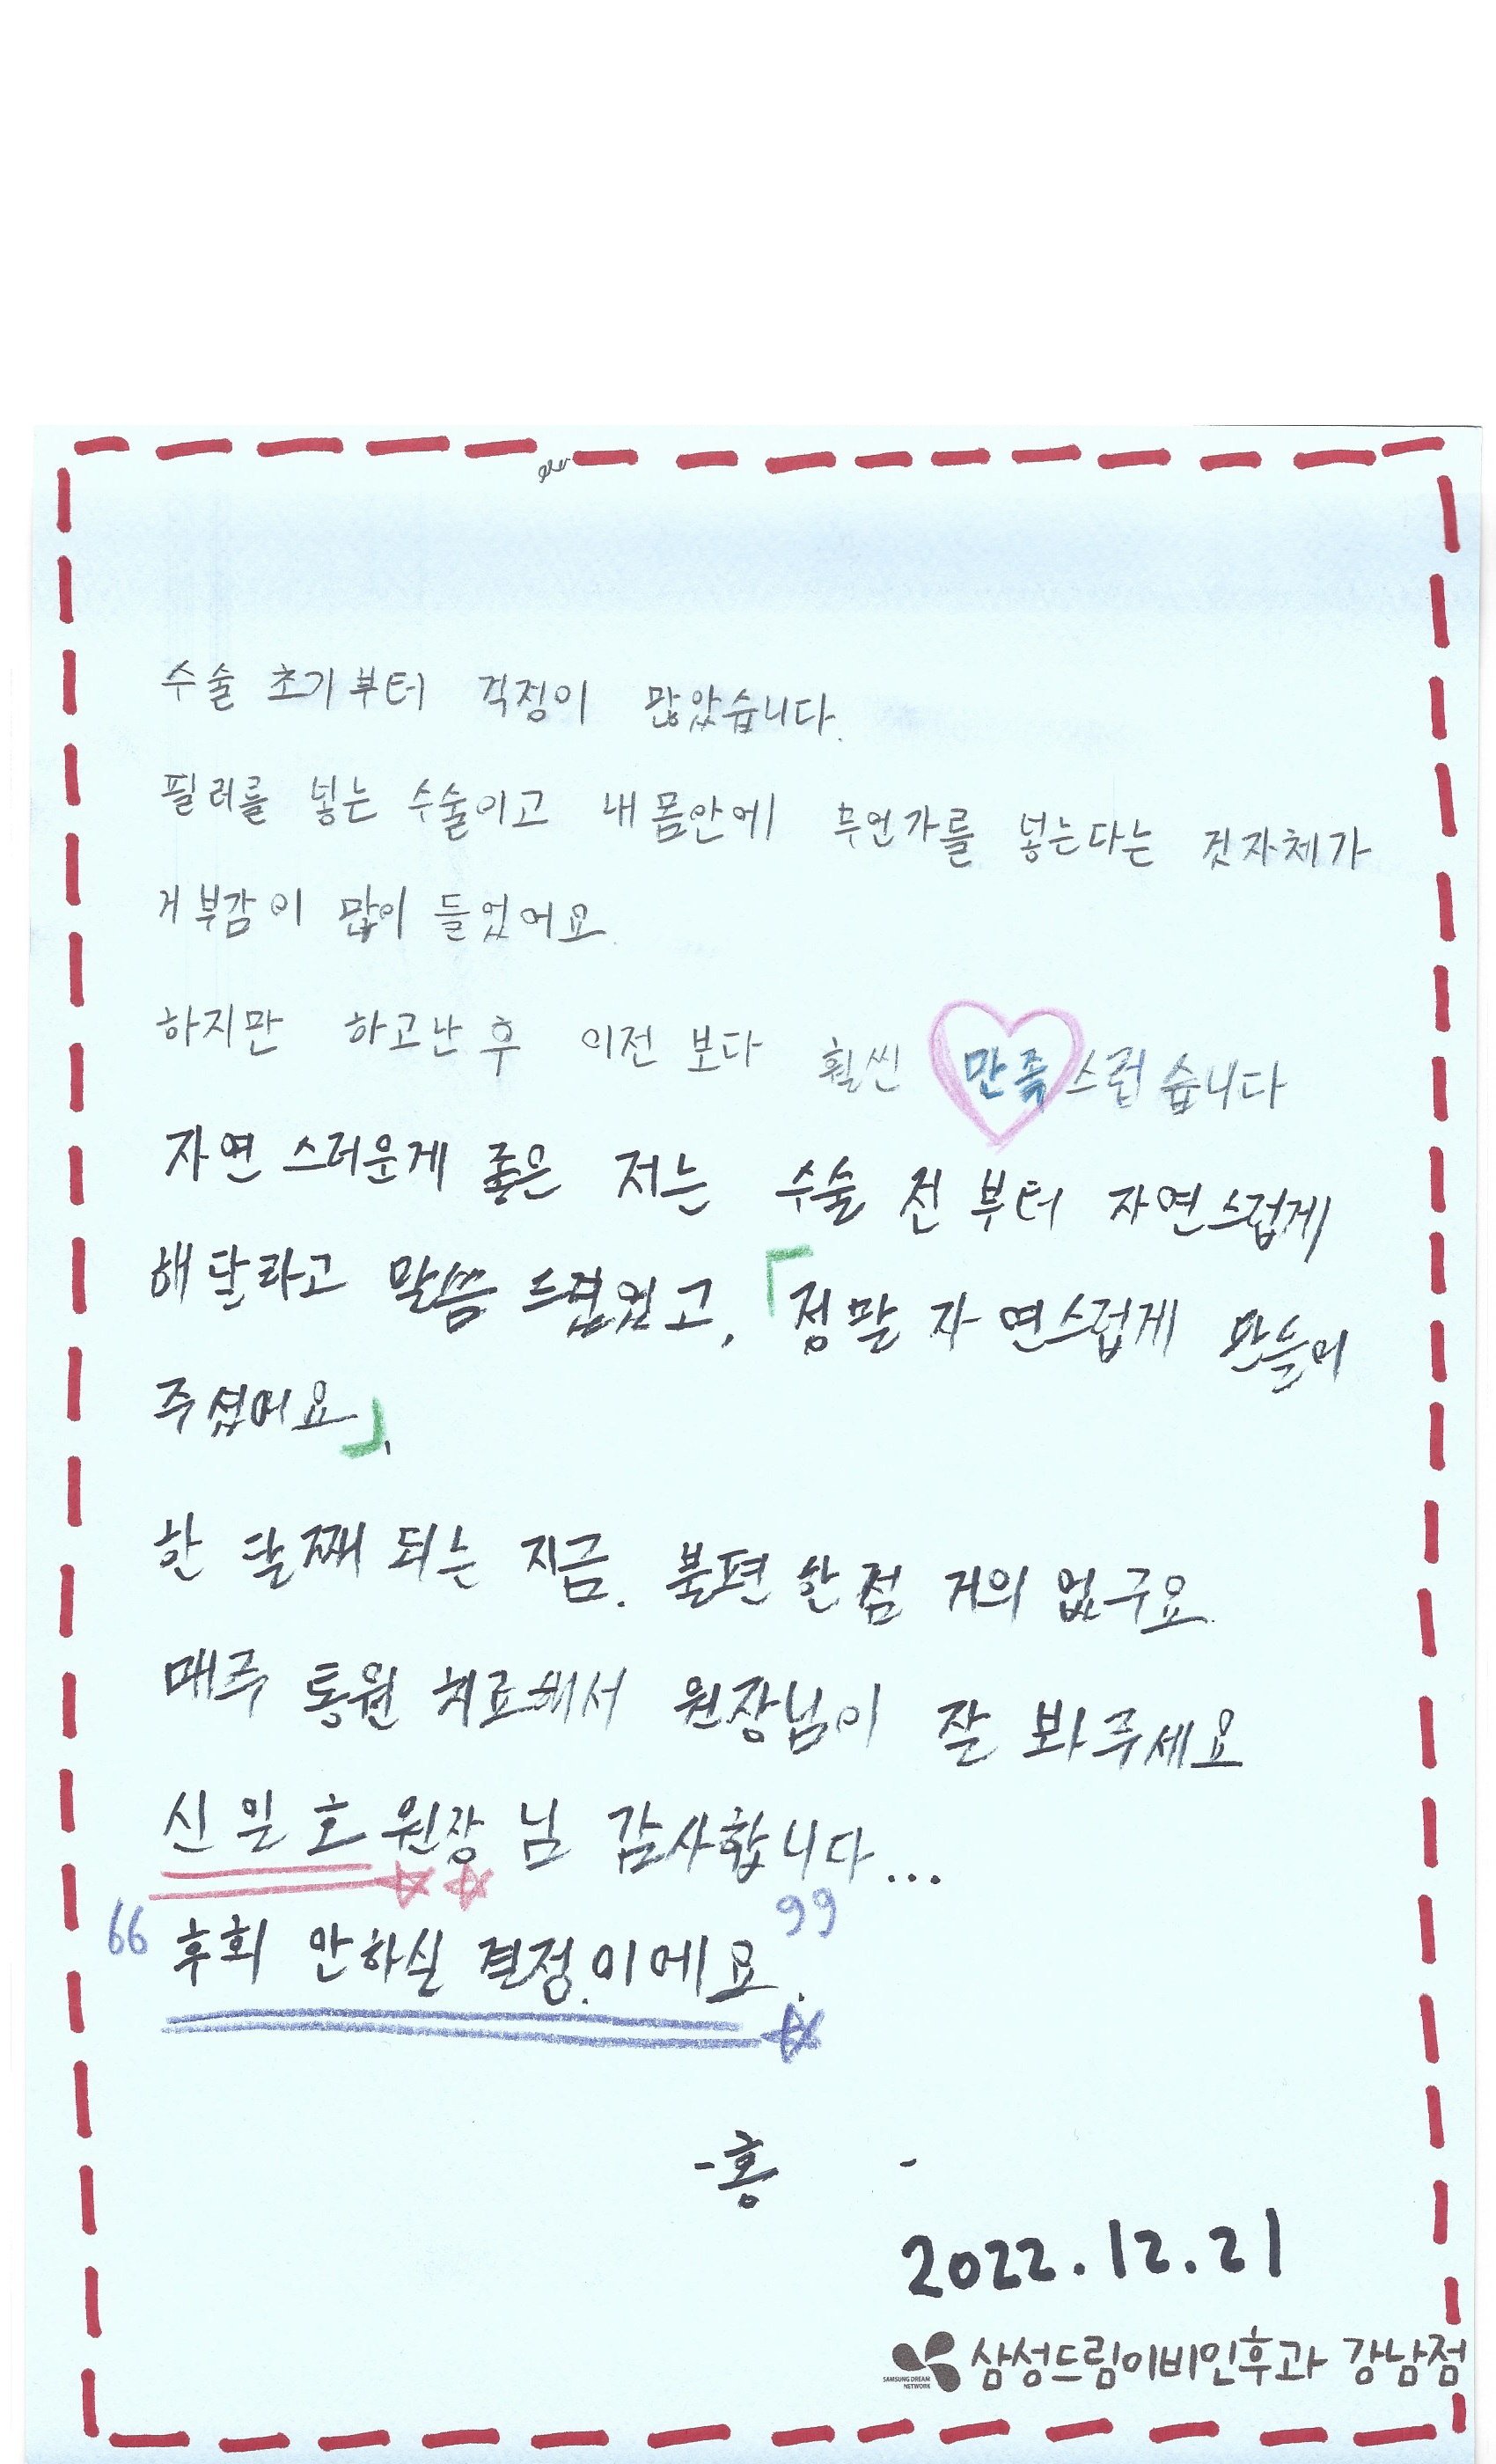 수술 초기부터 걱정이 많았습니다.
필러를 넣는 수술이고 내 몸안에 무언가를 넣는다는 것자체가
거부감이 많이 들었어요.
하지만 하고난 후 이전 보다 훨씬 만족스럽습니다
자연스러운게 좋은 저는 수술 전부터 자연스럽게
해달라고 말씀 드렸었고, 「정말 자연스럽게 만들어
주셨어요」.
한 달째 되는 지금. 불편한점 거의 없구요.
매주 통원 치료해서 원장님이 잘 봐주세요
신일호 원장님 감사합니다...
“후회 안하실 결정.이에요.”
-홍 -
2022.12.21
SAMSUNG DREAM NETWORK 삼성드림이비인후과 강남점